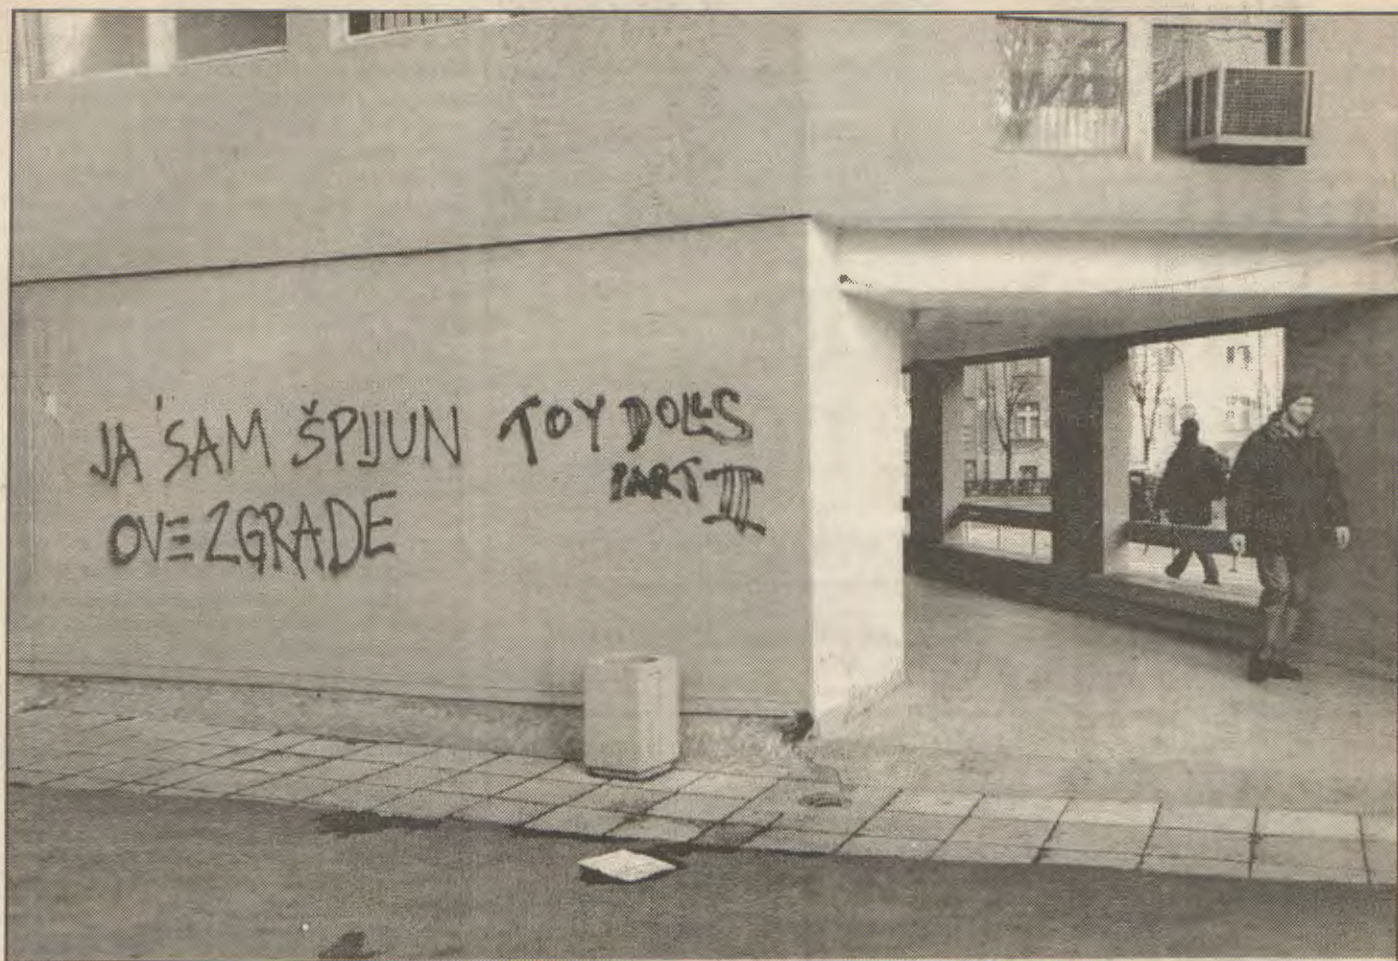 JA SAM ŠPIJUN
OVE ZGRADE
TOY DOLLS
PART III